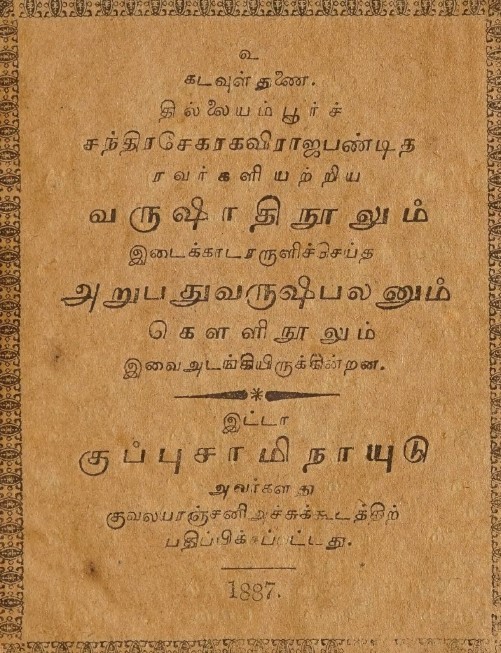 உ
கடவுள் துணை.
தில்லையம்பூர்ச்
சந்திரசேகரகவிராஜபண்டித
ரவர்களியற்றிய
வருஷாதிநூலும்
இடைக்காடரருளிச்செய்த
அறுபதுவருஷபலனும்
கௌளிநூலும்
இவைஅடங்கியிருக்கின்றன.
இட்டா
குப்புசாமிநாயுடு
அவர்களது
குவலயரஞ்சனிஅச்சுக்கூடத்திற்
பதிப்பிக்கப்பட்டது.
1887.